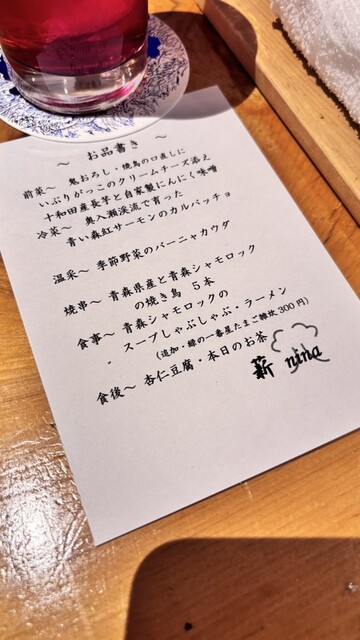 ～ お品書き ～
前菜～ 鬼おろし・焼鳥の口直しに
いぶりがっこのクリームチーズ添え
十和田産長芋と自家製にんにく味噌
冷菜～ 奥入瀬渓流で育った
青い森紅サーモンのカルパッチョ
温采～ 季節野菜のバーニャカウダ
焼串～ 青森県産と青森シャモロック
の焼き鳥 5本
食事～ 青森シャモロックの
- スープしゃぶしゃぶ・ラーメン
(追加・緑の一番星たまご雑炊300円)
食後～ 杏仁豆腐・本日のお茶
薪 nina